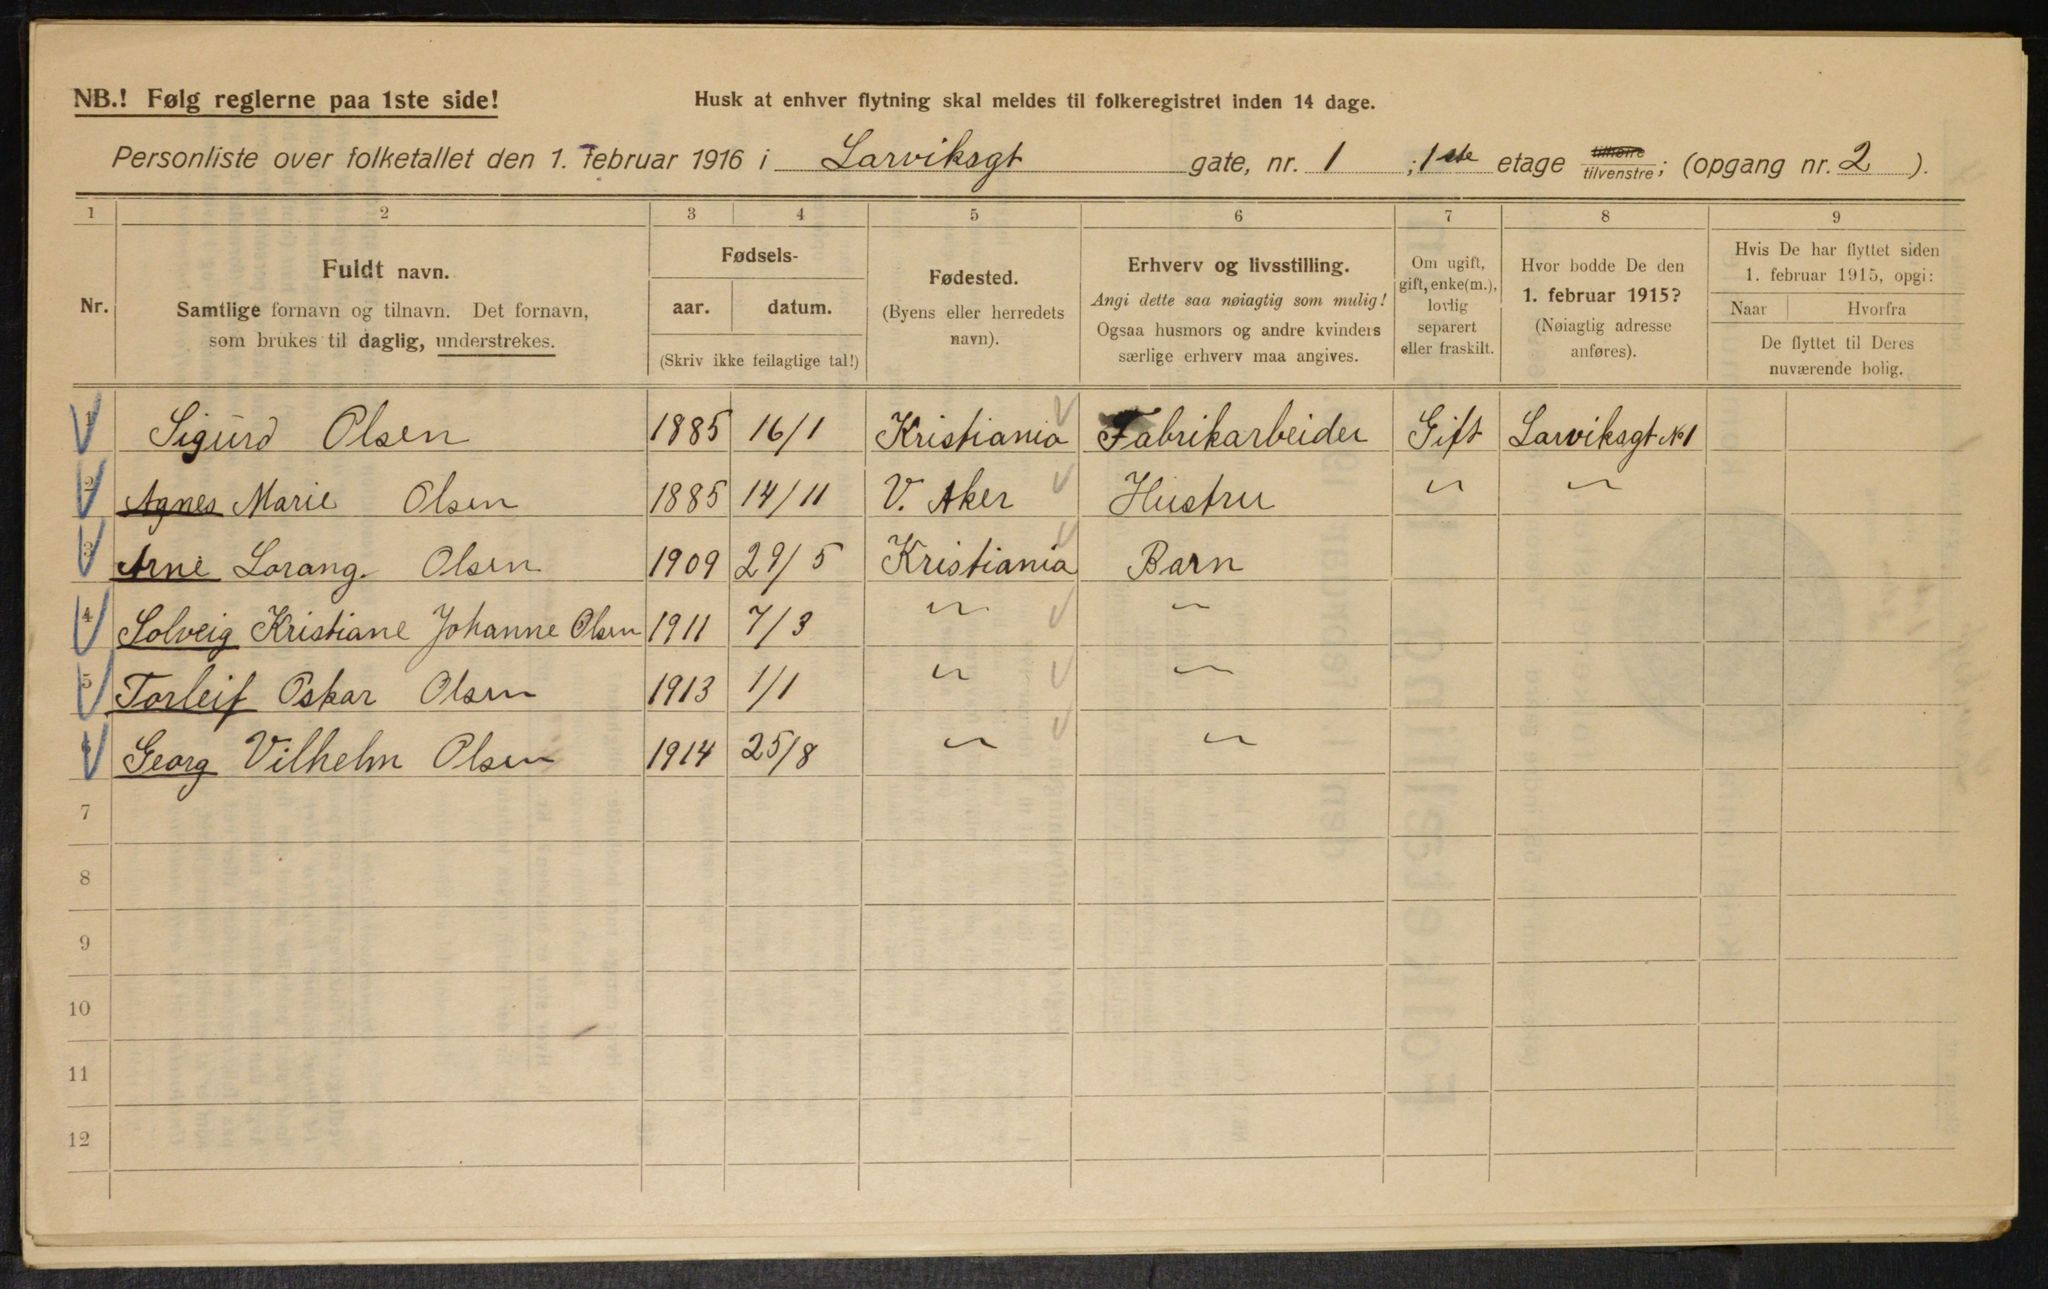 NB.! Følg reglerne paa 1ste side!
Husk at enhver flytning skal meldes til folkeregistret inden 14 dage.
Personliste over folketallet den 1. februar 1916 i Larviksgt gate, nr. 1 ; 1ste etage tilhøire tilvenstre; (opgang nr. 2 ).
1 2 3 4 5 6 7 8 9
Nr.
Fuldt navn.
Samtlige fornavn og tilnavn. Det fornavn,
som brukes til daglig, understrekes.
Fødsels-
aar. datum.
(Skriv ikke feilagtige tal!)
Fødested.
(Byens eller herredets
navn).
Erhverv og livsstilling.
Angi dette saa nøiagtig som mulig!
Ogsaa husmors og andre kvinders
særlige erhverv maa angives.
Om ugift,
gift, enke(m.),
lovlig
separert
eller fraskilt.
Hvor bodde De den
1. februar 1915?
(Nøiagtig adresse
anføres).
Hvis De har flyttet siden
1. februar 1915, opgi:
Naar Hvorfra
De flyttet til Deres
nuværende bolig.
1 Sigurd Olsen 1885 16/1 Kristiania Fabrikarbeider Gift Larviksgt No 1
2 Agnes Marie Olsen 1885 14/11 V. Aker Hustru " "
3 Arne Lorang. Olsen 1909 29/5 Kristiania Barn
4 Solveig Kristiane Johanne Olsen 1911 7/3 " "
5 Torleif Oskar Olsen 1913 1/1 " "
6 Georg Vilhelm Olsen 1914 25/8 " "
7
8
9
10
11
12